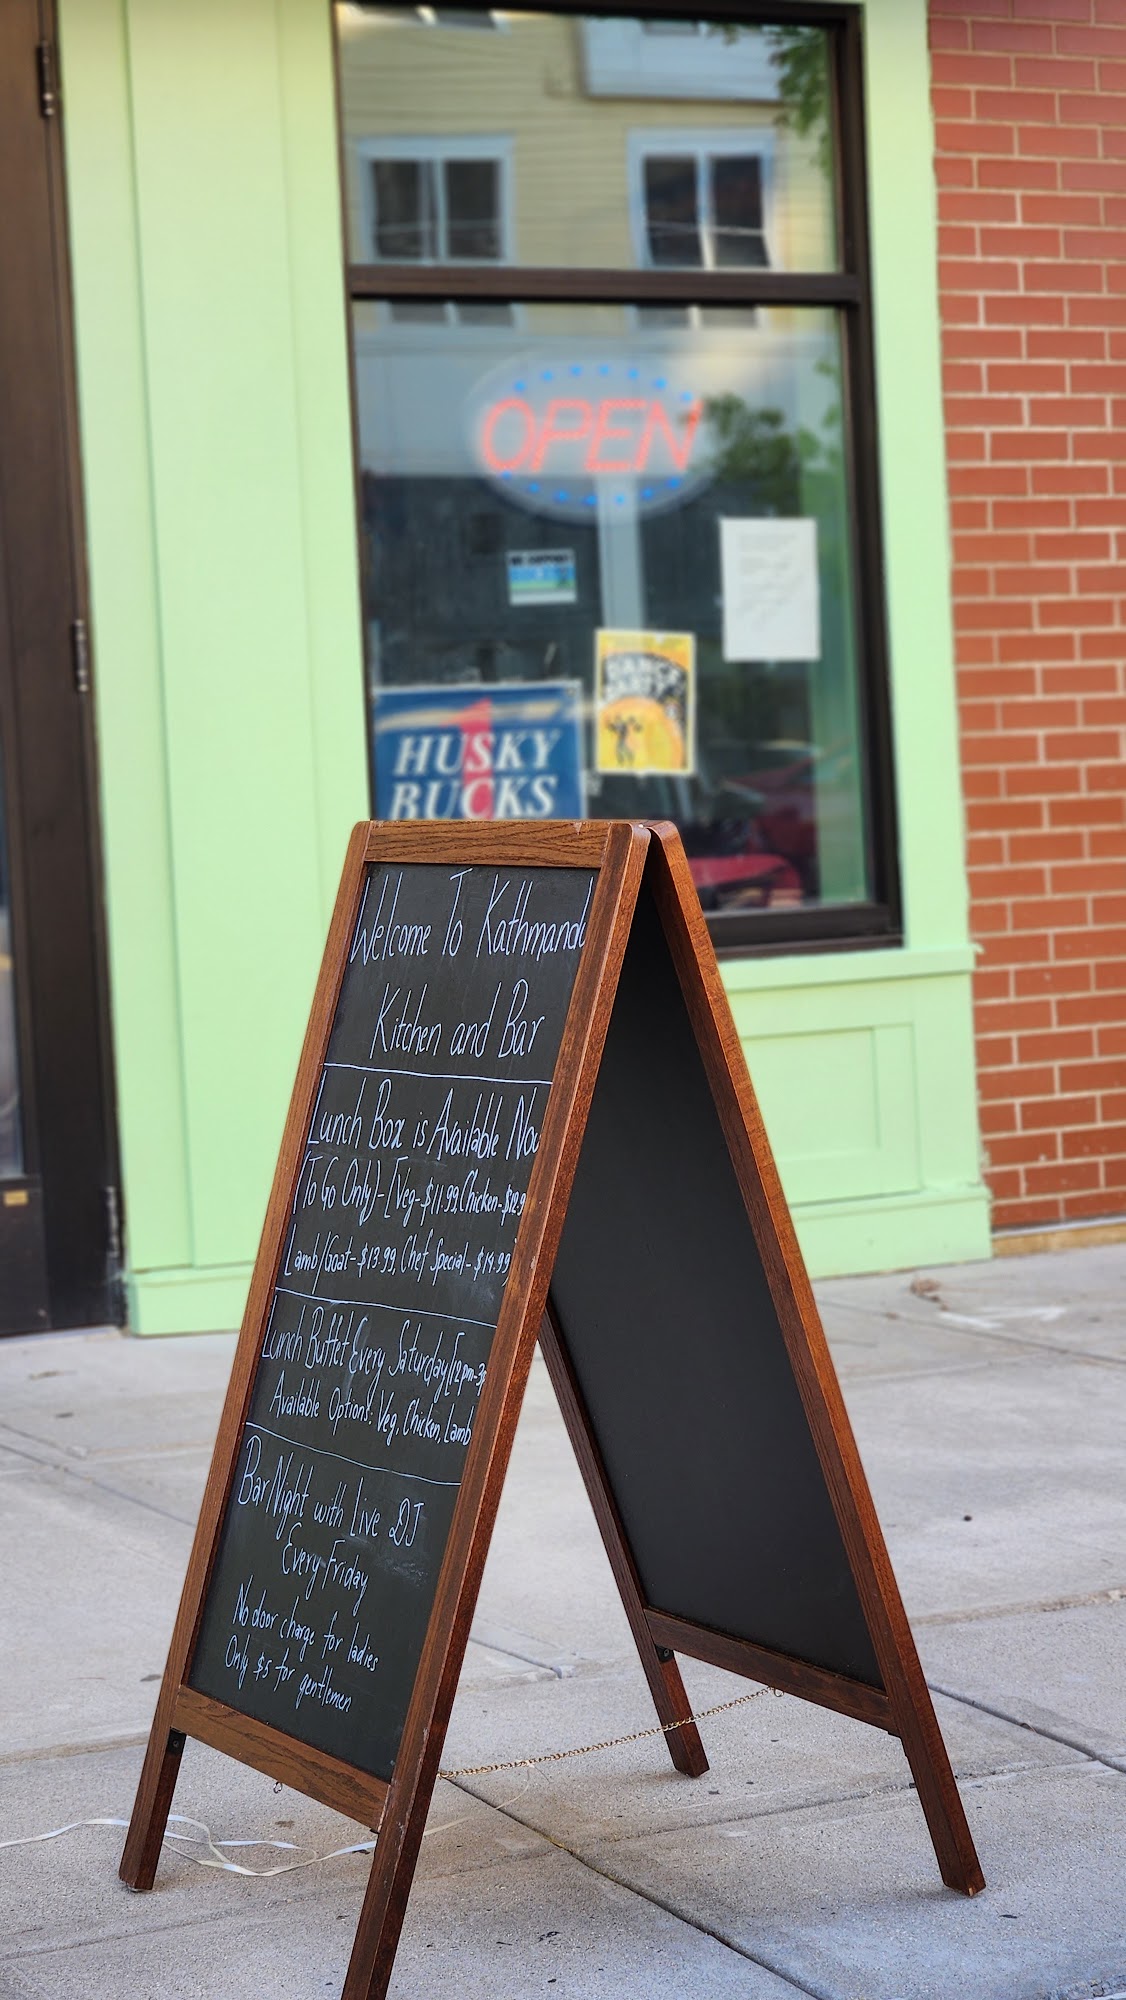 OPEN
DANCE
PARTY
HUSKY
BUCKS
Welcome To Kathmandu
Kitchen and Bar
Lunch Box is Available Now
(To Go Only)-[Veg-$11.99, Chicken-$12.9
Lamb/Goat-$13.99, Chef Special-$14.99]
Lunch Buffet Every Saturday [12pm-3p
Available Options: Veg, Chicken, Lamb
Bar Night with Live DJ
Every Friday
No door charge for ladies
Only $5 for gentlemen